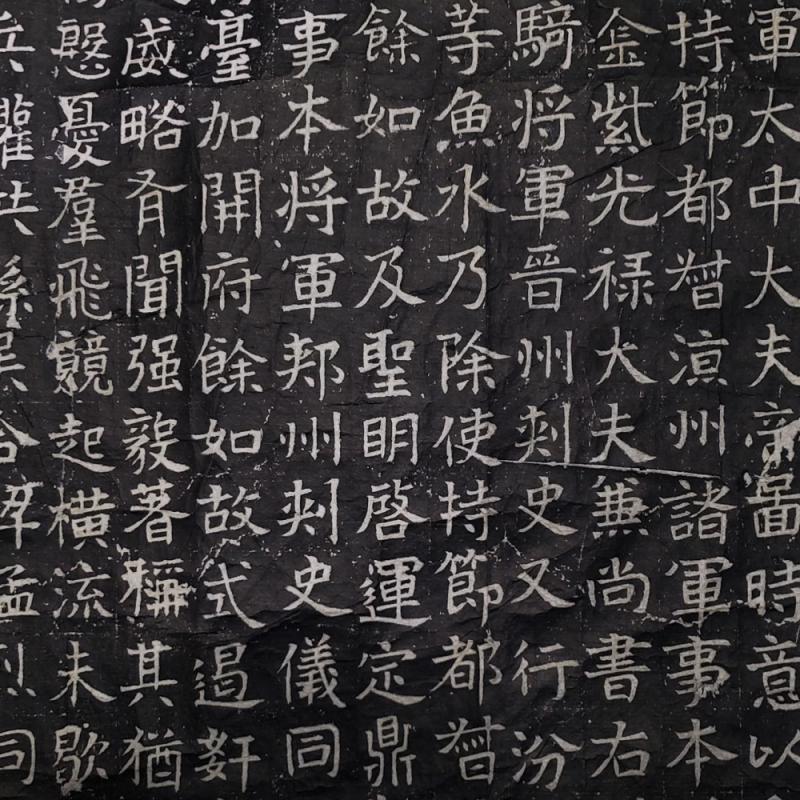 軍太中大夫帝啚時意以
持節都督涼州諸軍事本
金紫光禄大夫兼尚書右
騎将軍晉州刺史又行汾
等魚水乃除使持節都督
餘如故及聖明啓運定鼎
事本将軍郟州刺史儀同
臺加開府餘如故式遏姧
威略有聞强毅著稱其猶
慇憂羣飛競起横流未歇
兵權共孫吳合猛烈同